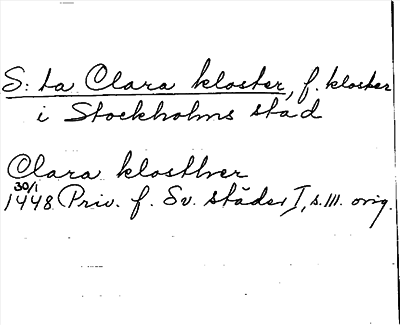 S:ta Clara kloster, f. kloster
i Stockholms stad
Clara klosthver
30/1
1448 Priv. f. Sv. städer I, s. 111. orig.